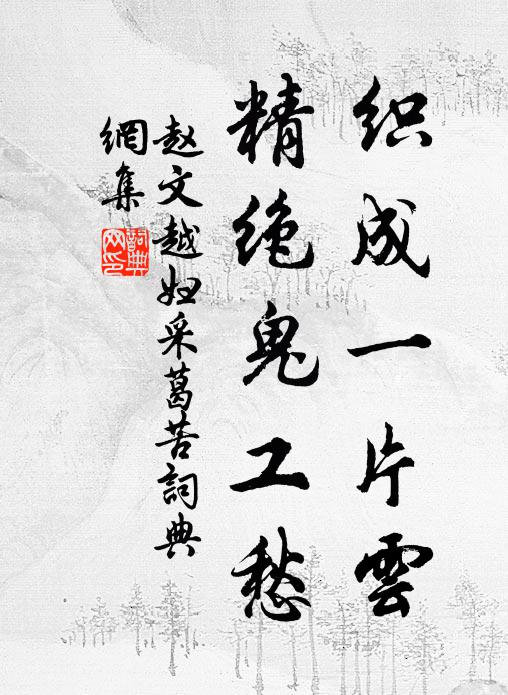 织成一片雲
精绝鬼工愁
赵文越妇采葛苦詞典
網集
詞典网印